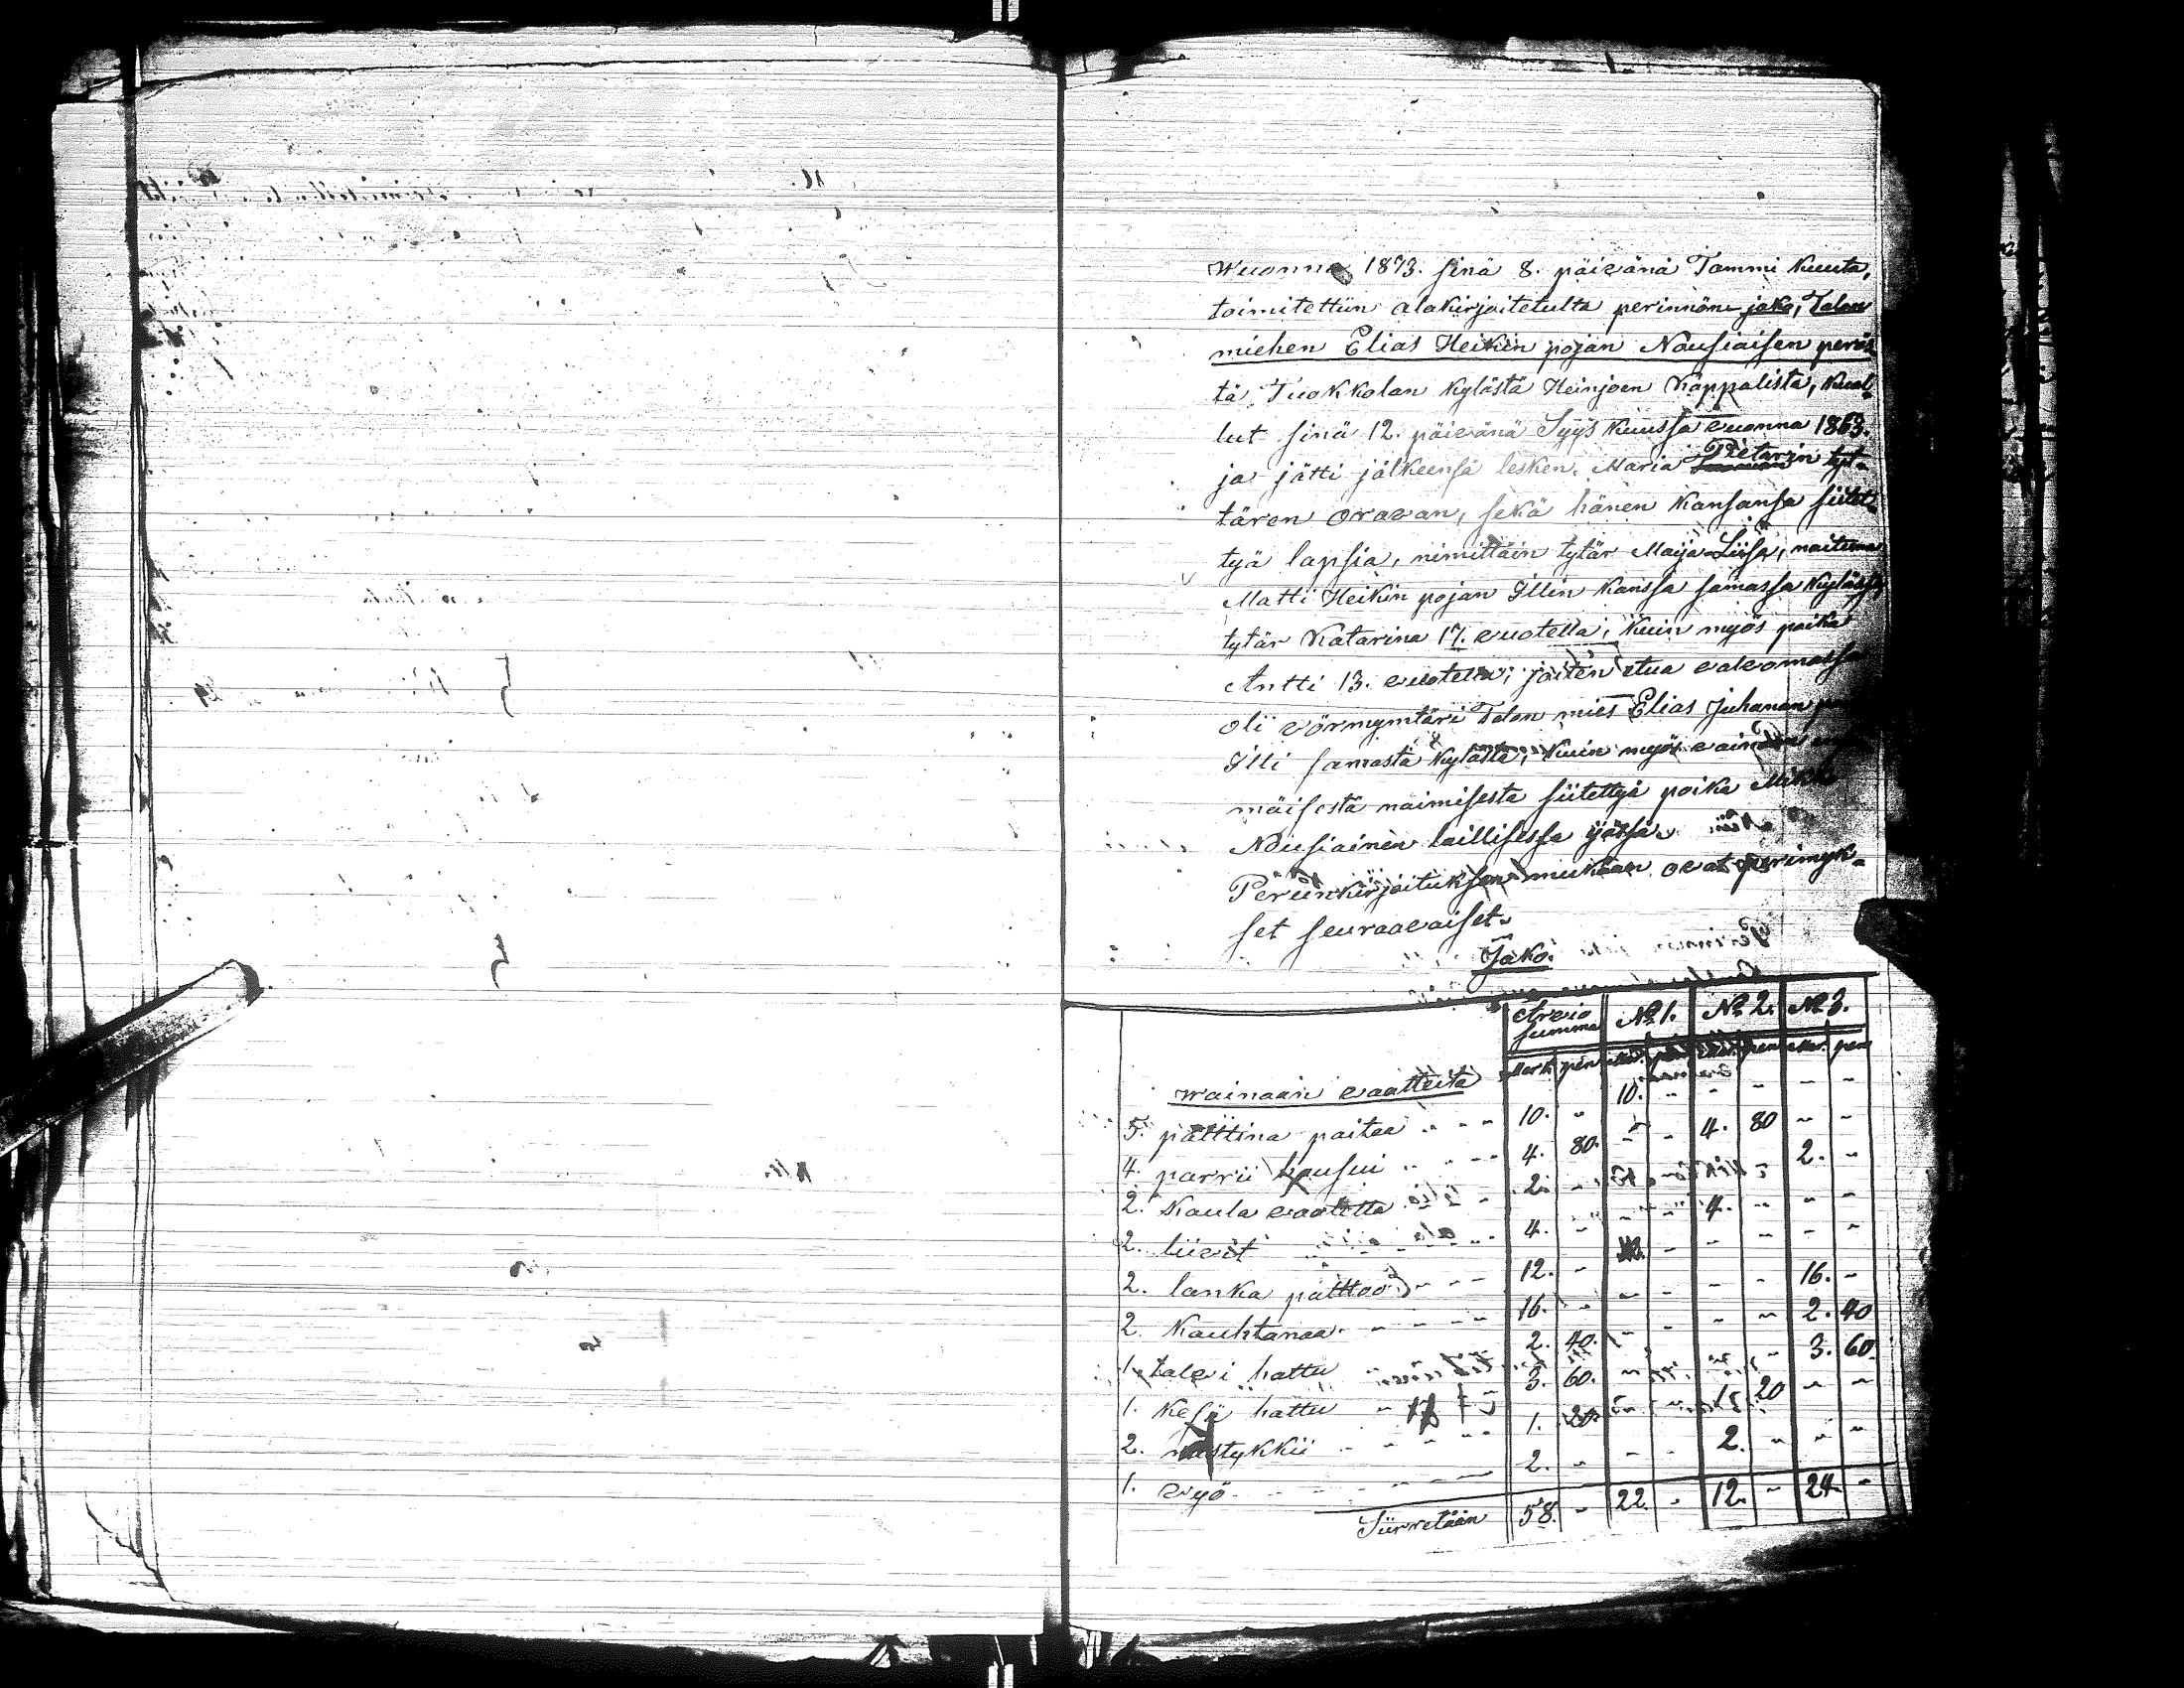 Wuonna 1873. sinä 8. päivänä Tammi kuuta,
toimitettiin alakirjoitetulta perinnön jako, Talon
miehen Elias Heikin pojan Nousiaisen peris-
tä, Tuokkolan kylästä Heinjoen kappalista, kuol-
lut sinä 12. päivänä Syys kuussa vuonna 1863.
ja jätti jälkeensä lesken, Maria Pietarin tyt-
tären oravan, sekä hänen kansansa siitet-
tyä lapsia, nimittäin tytär Maija Liisa, naituna
Matti Heikin pojan Illin kanssa samassa kylässä,
tytär Katarina 17. vuotella; kuin myös poika
Antti 13. vuotella; joiten etua valvomassa
oli vörmyntäri Talon mies Elias Juhanan
Illi samasta kylästä; kuin myös vainaan
mäisestä naimisesta siitettyä poika Mikko
Nousiainen laillisessa ijässä.
Perunkirjoituksen mukaan ovat perimyk-
set seuraavaiset.
Jako.
Arvio summa № 1. № 2. № 3.
Mark. pen Mar. pen Mar. pen Mar. pen
Wainaan vaatteita
5. palttina paitaa 10. - 10. - - - - -
4. parrii housui 4. 80. - - 4. 80 - -
2. kaula vaatetta 2. - - - - - 2. -
2. liivit 4. - - - 4. - - -
2. lanka palttoo 12. - - - - - -
2. kauhtanaa 16. - - - - - 16. -
1. talvi hattu 2. 40. - - - - 2. 40
1. kesä hattu 3. 60. - - - - 3. 60.
2. mastykkii 1. 20 - - 1. 20 - -
1. vyö 2. - - - 2. - - -
Siirretään 58. - 22. - 12. - 24 -